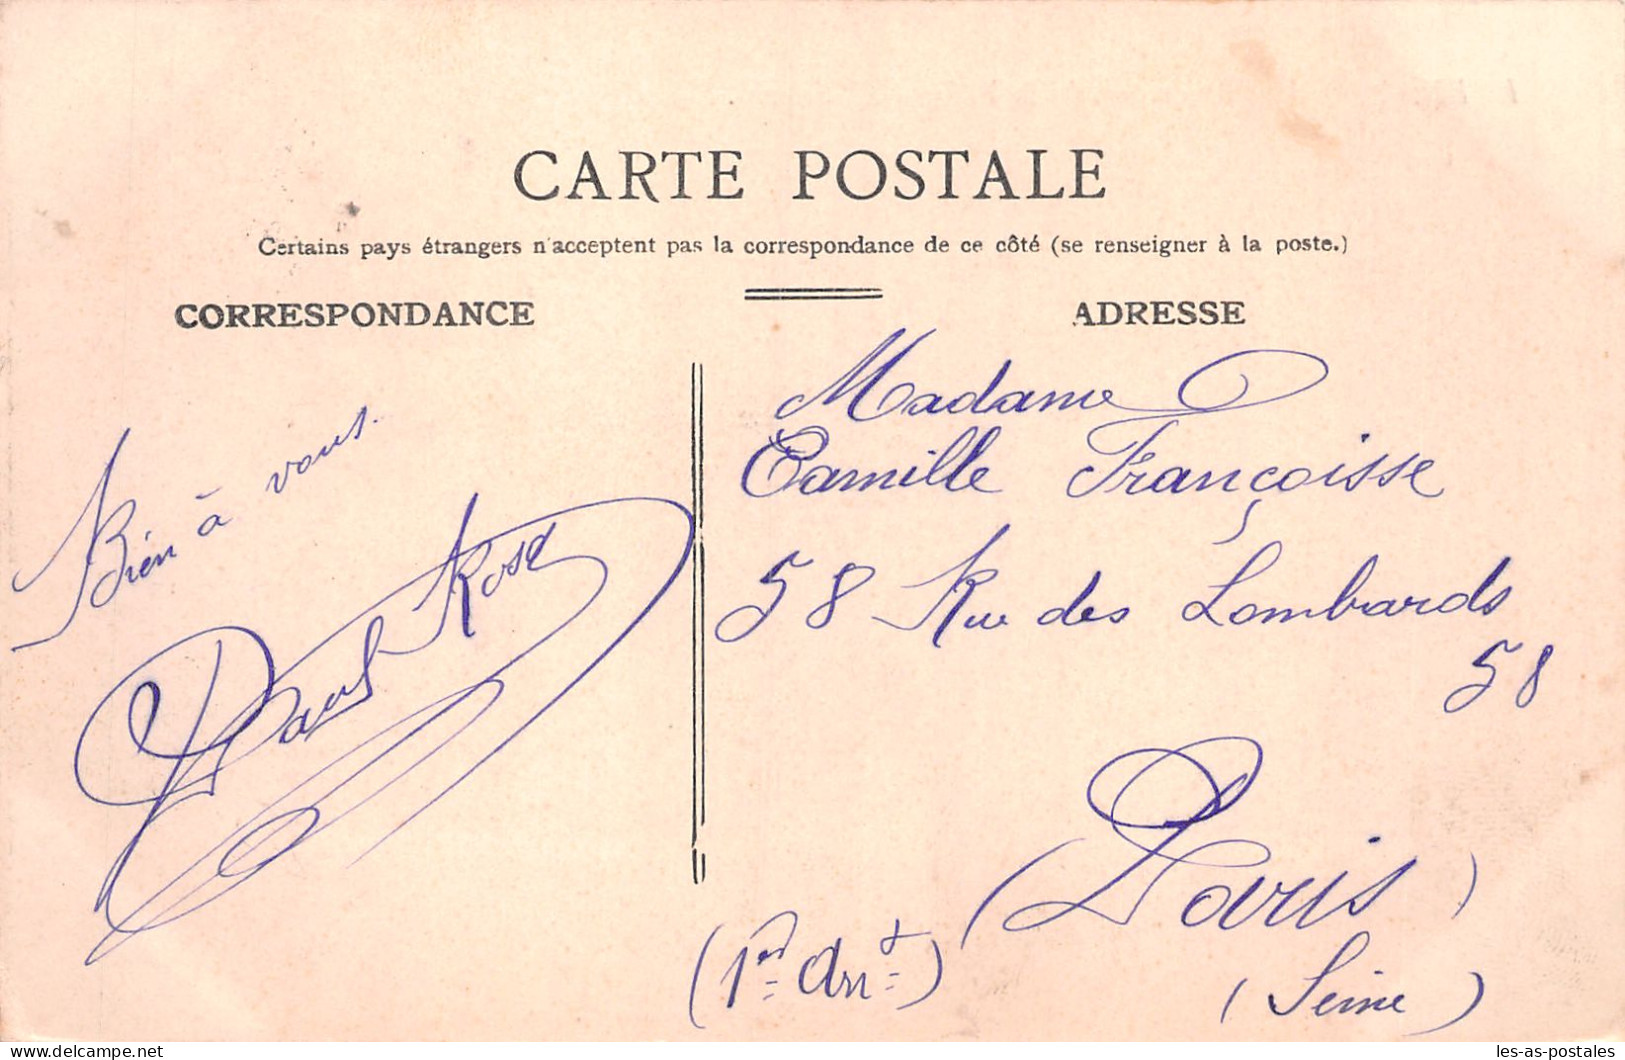 CARTE POSTALE
Certains pays étrangers n'acceptent pas la correspondance de ce côté (se renseigner à la poste.)
CORRESPONDANCE
ADRESSE
Bien à vous.
Paul Rose
Madame
Camille Françoisse
58 Rue des Lombards
58
(Paris)
(1er Art)
(Seine)
delcampe.net
les-as-postales